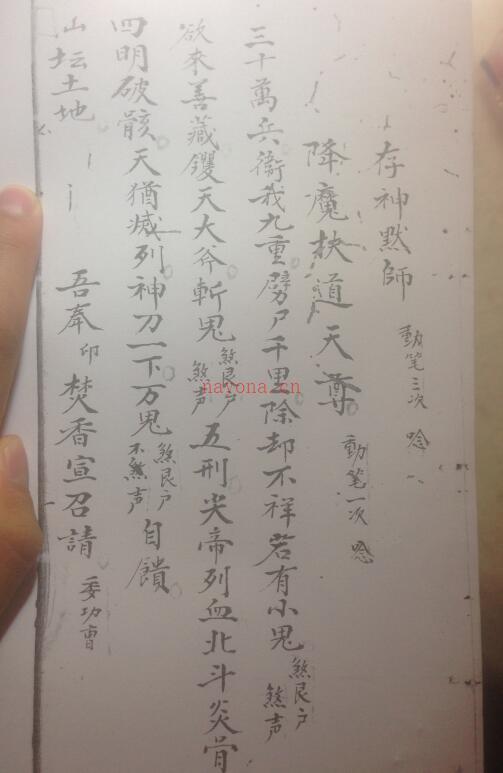 存神默師 動笔三次 唸
降魔扶道天尊 動笔一次 唸
三十萬兵衛我九重劈尸千里除却不祥若有小鬼 煞艮户 煞声
欲來善藏钁天大斧斬鬼 煞艮户 煞声 五刑炎帝列血北斗炎骨
四明破骸天猶滅列神刀一下万鬼 煞艮户 不煞声 自饋
山坛土地 吾奉 印 焚香宣召請 委功曹
nayona.cn